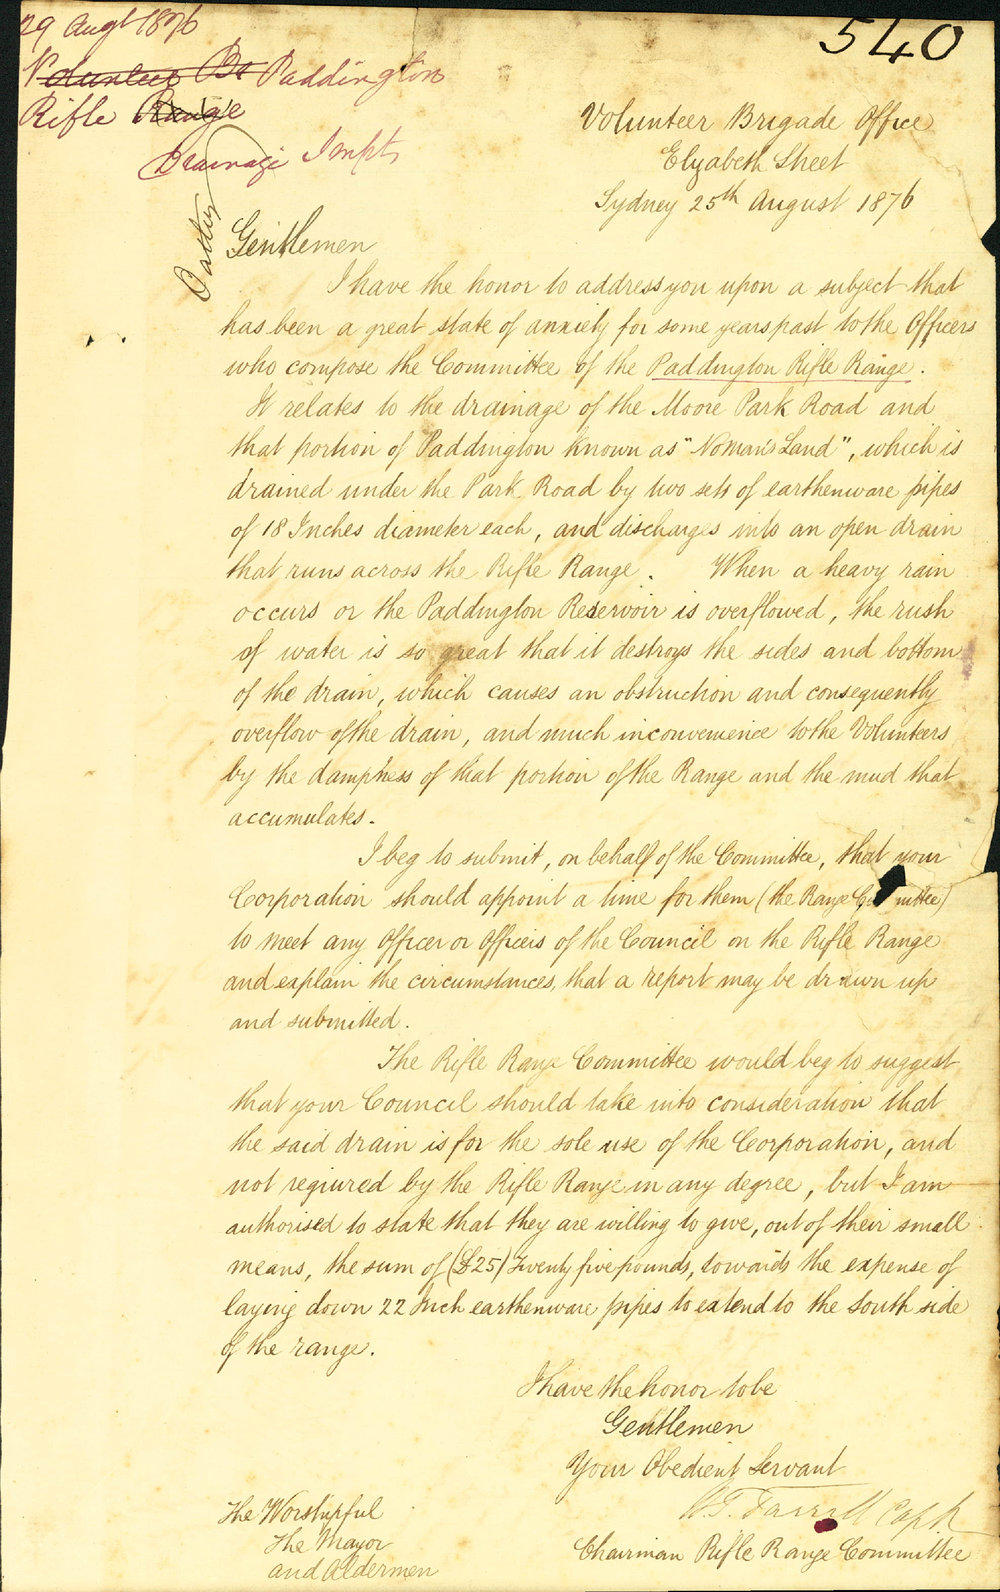 29 Augt 1876
540
Volunteer Be Paddington
Rifle Range
Drainage Impts
Volunteer Brigade Office
Elizabeth Street
Sydney 25th August 1876
Gentlemen
I have the honor to address you upon a subject that
has been a great state of anxiety for some years past to the Officers
who compose the Committee of the Paddington Rifle Range.
It relates to the drainage of the Moore Park Road and
that portion of Paddington known as "Noman's Land", which is
drained under the Park Road by two sets of earthenware pipes
of 18 Inches diameter each, and discharges into an open drain
that runs across the Rifle Range. When a heavy rain
occurs or the Paddington Reservoir is overflowed, the rush
of water is so great that it destroys the sides and bottom
of the drain, which causes an obstruction and consequently
overflow of the drain, and much inconvenience to the Volunteers
by the dampness of that portion of the Range and the mud that
accumulates.
I beg to submit, on behalf of the Committee, that your
Corporation should appoint a time for them (the Range Committee)
to meet any Officer or Officers of the Council on the Rifle Range
and explain the circumstances, that a report may be drawn up
and submitted.
The Rifle Range Committee would beg to suggest
that your Council should take into consideration that
the said drain is for the sole use of the Corporation, and
not required by the Rifle Range in any degree, but I am
authorised to state that they are willing to give, out of their small
means, the sum of (£25) Twenty five pounds, towards the expense of
laying down 22 Inch earthenware pipes to extend to the South side
of the range.
I have the honor to be
Gentlemen
Your Obedient Servant
Capt
Chairman Rifle Range Committee
The Worshipful
The Mayor
and Aldermen